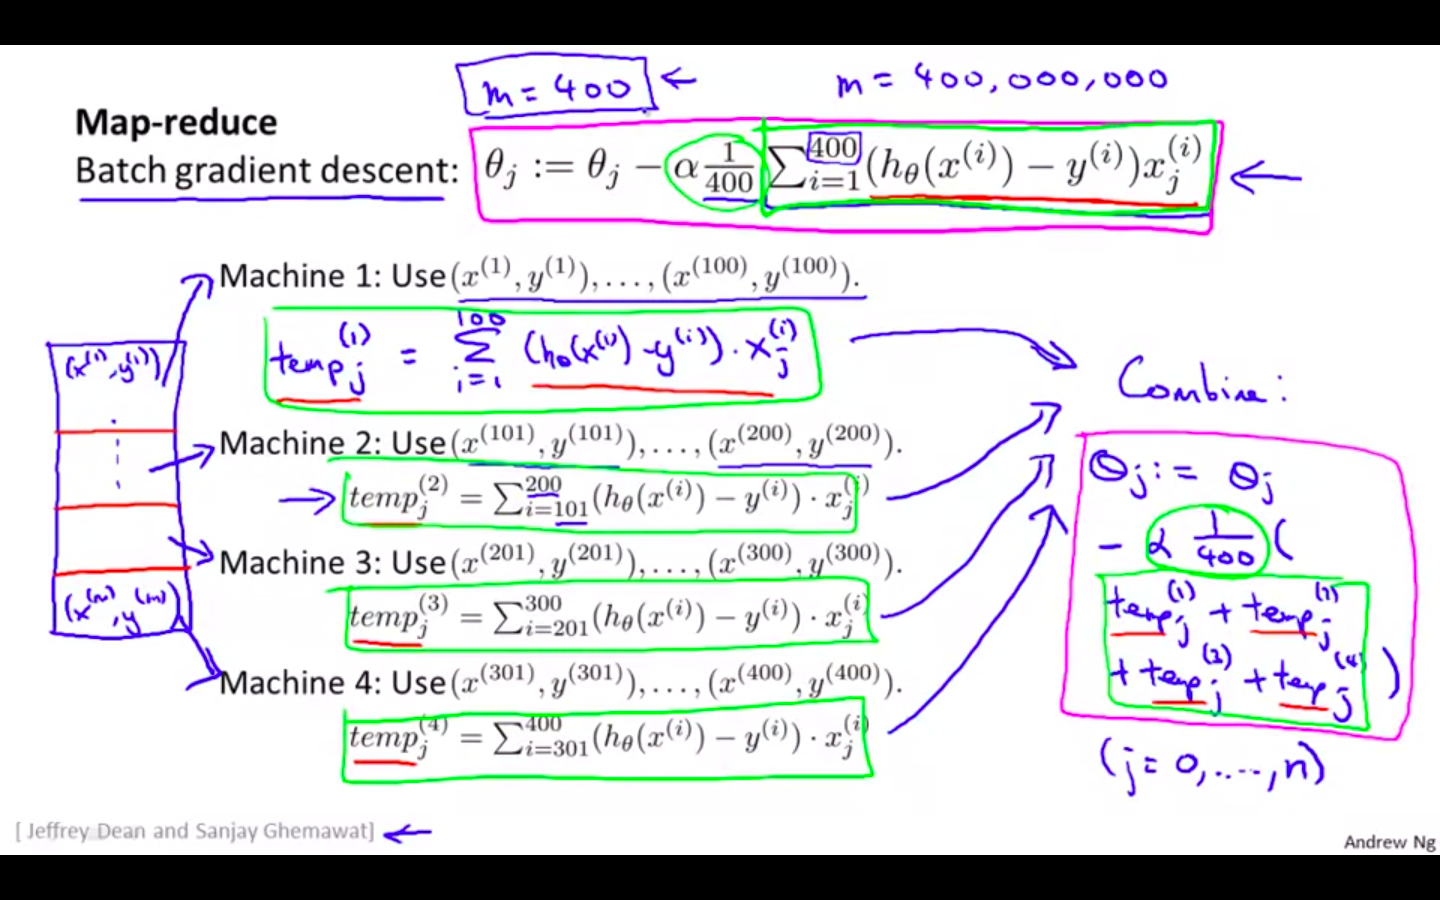 m = 400 ← m = 400,000,000
Map-reduce
Batch gradient descent: θ_j := θ_j − α 1/400 ∑_{i=1}^{400} (h_θ(x^{(i)}) − y^{(i)}) x_j^{(i)}
Machine 1: Use (x^{(1)}, y^{(1)}), . . . , (x^{(100)}, y^{(100)}).
temp_j^{(1)} = ∑_{i=1}^{100} (h_θ(x^{(i)}) − y^{(i)}) · x_j^{(i)}
(x^{(1)}, y^{(1)})
Machine 2: Use (x^{(101)}, y^{(101)}), . . . , (x^{(200)}, y^{(200)}).
temp_j^{(2)} = ∑_{i=101}^{200} (h_θ(x^{(i)}) − y^{(i)}) · x_j^{(i)}
Machine 3: Use (x^{(201)}, y^{(201)}), . . . , (x^{(300)}, y^{(300)}).
temp_j^{(3)} = ∑_{i=201}^{300} (h_θ(x^{(i)}) − y^{(i)}) · x_j^{(i)}
(x^{(m)}, y^{(m)})
Machine 4: Use (x^{(301)}, y^{(301)}), . . . , (x^{(400)}, y^{(400)}).
temp_j^{(4)} = ∑_{i=301}^{400} (h_θ(x^{(i)}) − y^{(i)}) · x_j^{(i)}
Combine:
θ_j := θ_j
− α 1/400 (
temp_j^{(1)} + temp_j^{(2)}
+ temp_j^{(3)} + temp_j^{(4)} )
(j = 0, ...., n)
[ Jeffrey Dean and Sanjay Ghemawat] ←
Andrew Ng